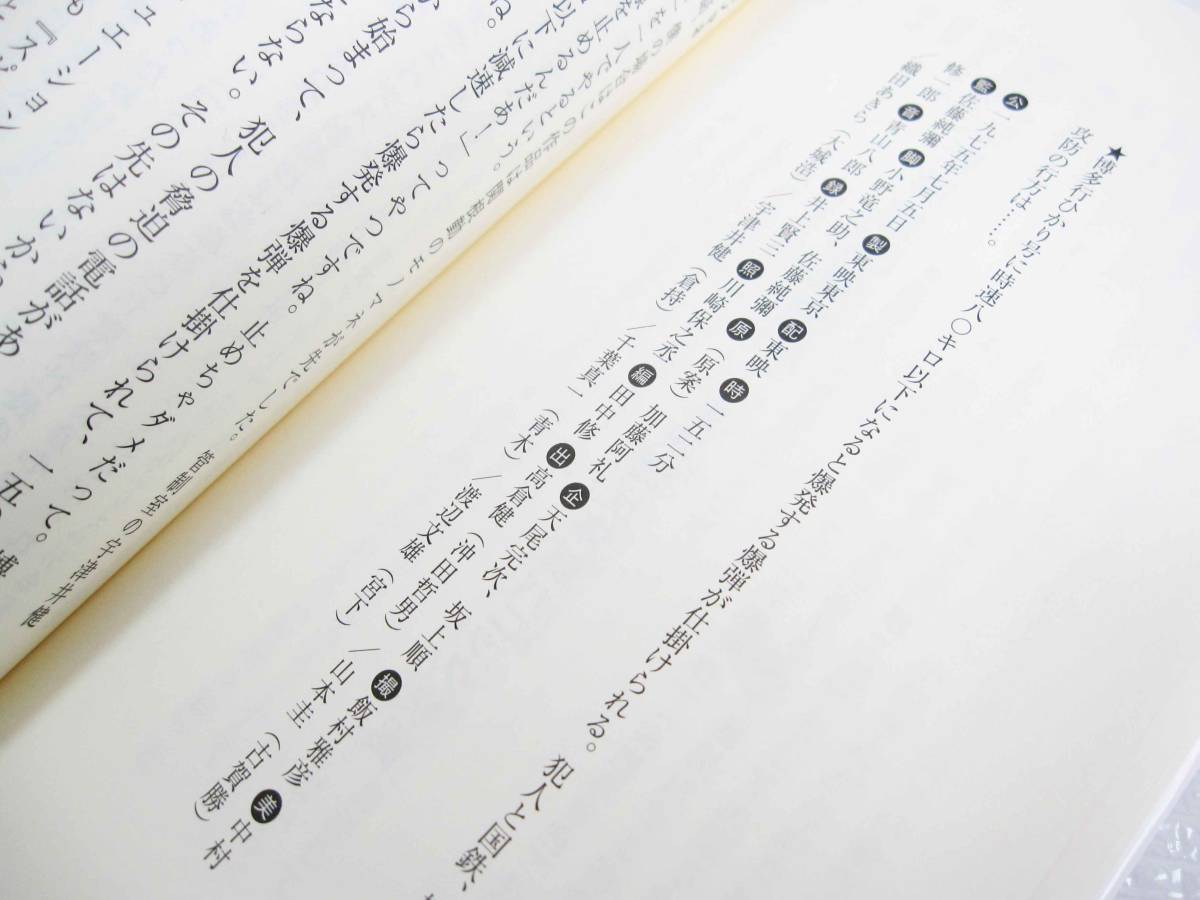 ★博多行ひかり号に時速八〇キロ以下になると爆発する爆弾が仕掛けられる。犯人と国鉄、
攻防の行方は……。
公一九七五年七月五日 製東映東京 配東映 時一五二分
監佐藤純彌 脚小野竜之助、佐藤純彌 原(原案)加藤阿礼 企天尾完次、坂上順 撮飯村雅彦 美中村
修一郎 音青山八郎 録井上賢三 照川崎保之丞 編田中修 出高倉健(沖田哲男)/山本圭(古賀勝)
織田あきら(大城浩)/宇津井健(倉持)/千葉真一(青木)/渡辺文雄(宮下)
の場合はこの作品は関根勤のモノマネが先でした。管制室の宇津井健
を一人でやるという。
を止めるんだあ!」ってやつですね。止めちゃダメだって。
以下に減速したら爆発する爆弾を仕掛けられて、一五
ね。
から始まって、犯人の脅迫の電話があ
ならない。その先はないから
ュエーション
『スピ